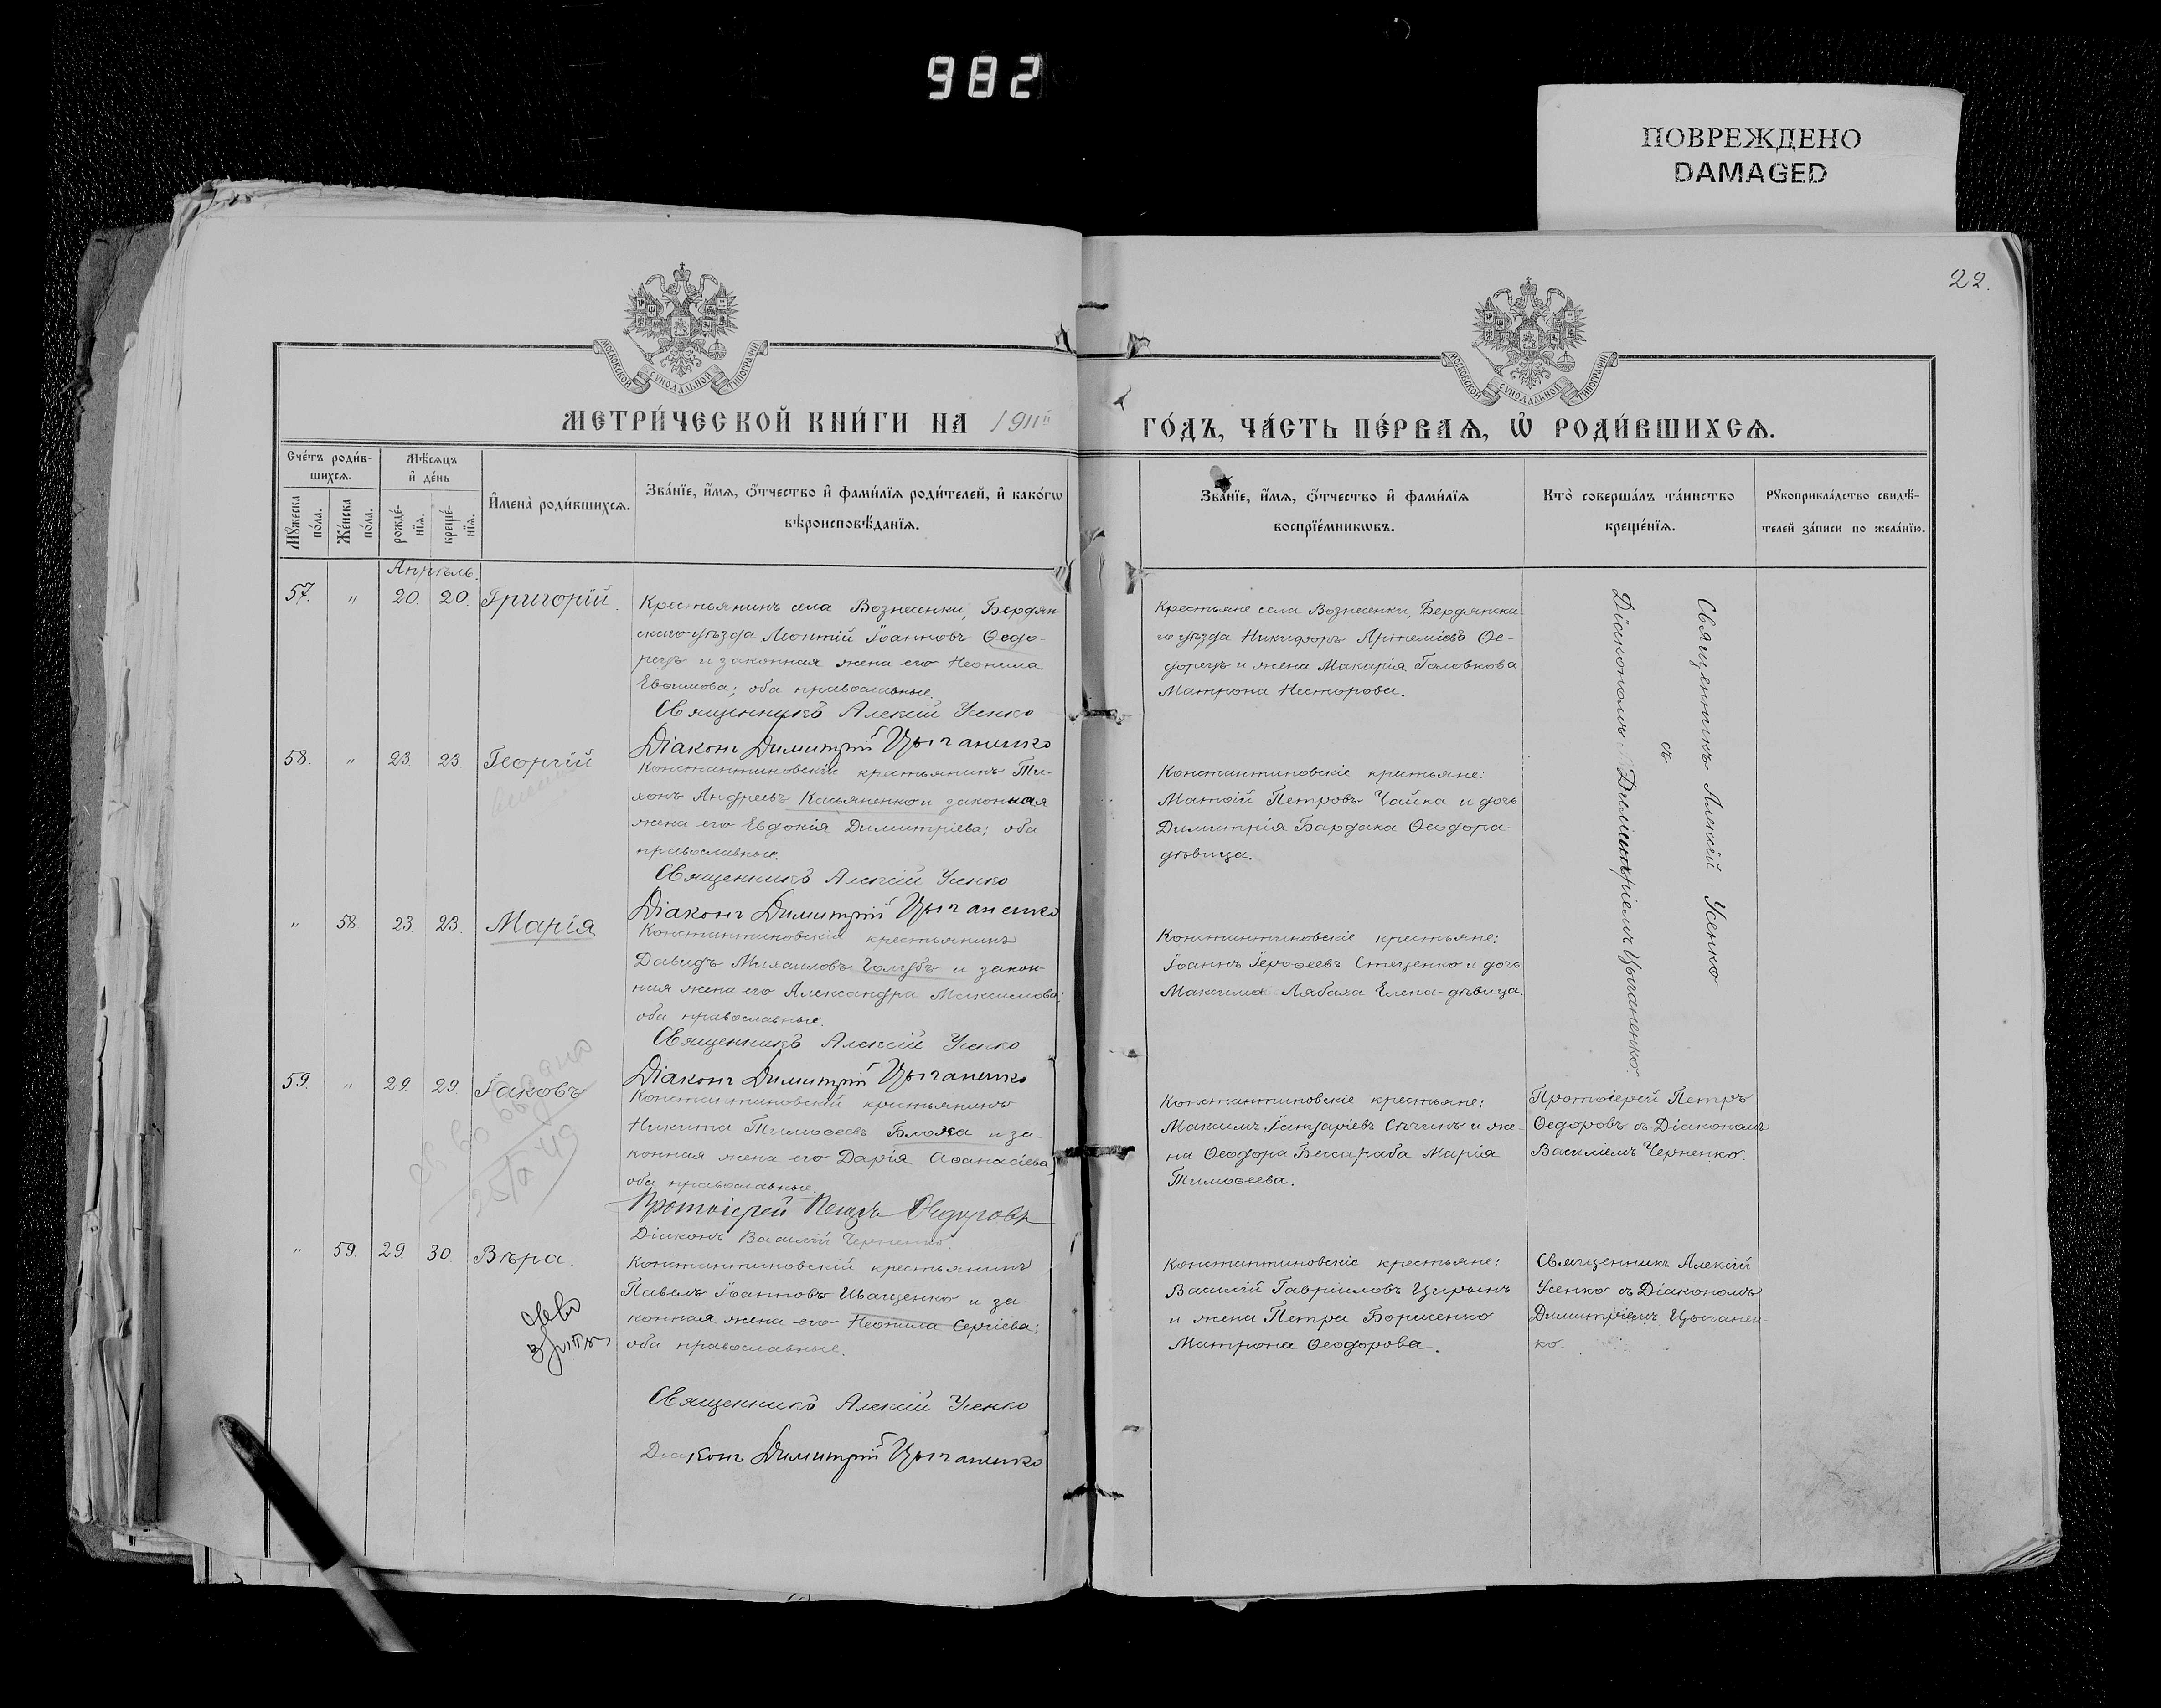 982
ПОВРЕЖДЕНО
DAMAGED
22.
МОСКОВСКОЙ СѴНОДАЛЬНОЙ ТИПОГРАФІИ
МОСКОВСКОЙ СѴНОДАЛЬНОЙ ТИПОГРАФІИ
МЕТРИ́ЧЕСКОЙ КНИ́ГИ НА 1911й ГО́ДЪ, ЧА́СТЬ ПЕ́РВАѦ, Ѡ҆ РОДИ́ВШИХСѦ.
Сче́тъ роди́в-
шихсѧ.
Мꙋ́жеска
по́ла.
Же́нска
по́ла.
Мѣ́сѧцъ
и҆ де́нь
рожде́-
нїѧ.
креще́-
нїѧ.
И҆мена̀ роди́вшихсѧ.
Зва́нїе, и҆́мѧ, ѻ҆́тчество и҆ фами́лїѧ роди́телей, и҆ како́гѡ
вѣроисповѣ́данїѧ.
Зва́нїе, и҆́мѧ, ѻ҆́тчество и҆ фами́лїѧ
воспрїе́мникѡвъ.
Кто̀ соверша́лъ та́инство
креще́нїѧ.
Рꙋкоприкла́дство свидѣ́-
телей за́писи по жела́нїю.
Апрѣль.
57. " 20. 20. Григорій.
Крестьянинъ села Вознесенки, Бердян-
скаго уѣзда Леонтій Іоанновъ Ѳедо-
рецъ и законная жена его Неонила
Евѳимова; оба православные.
Священникъ Алексій Усенко
Діаконъ Димитрій Цыганенко
Крестьяне села Вознесенки, Бердянска-
го уѣзда Никифоръ Артеміевъ Ѳе-
дорецъ и жена Макарія Головкова
Матрона Несторова.
Священникъ Алексій Усенко
съ
Діакономъ Димитріемъ Цыганенко.
58. " 23. 23. Георгій
Константиновскій крестьянинъ Ти-
хонъ Андреевъ Касьяненко и законная
жена его Евдокія Димитріева; оба
православные.
Священникъ Алексій Усенко
Діаконъ Димитрій Цыганенко
Константиновскіе крестьяне:
Матѳій Петровъ Чайка и дочь
Димитрія Бардака Ѳеодора-
дѣвица.
" 58 23. 23. Марія
Константиновскій крестьянинъ
Давидъ Михаиловъ Голубъ и закон-
ная жена его Александра Максимова;
оба православные.
Священникъ Алексій Усенко
Діаконъ Димитрій Цыганенко
Константиновскіе крестьяне:
Іоаннъ Іероѳеевъ Стеценко и дочь
Максима Лябаха Елена-дѣвица.
59. " 29. 29. Іаковъ
Константиновскій крестьянинъ
Никита Тимоѳеевъ Блоха и за-
конная жена его Дарія Аѳанасіева,
оба православные.
Протоіерей Петръ Ѳедоровъ
Діаконъ Василій Черненко.
Константиновскіе крестьяне:
Максимъ Сѣчинъ и же-
на Ѳеодора Бессараба Марія
Тимоѳеева.
Протоіерей Петръ
Ѳедоровъ съ Діакономъ
Василіемъ Черненко.
" 59. 29. 30. Вѣра.
Константиновскій крестьянинъ
Павелъ Іоанновъ Иващенко и за-
конная жена его Неонила Сергіева;
оба православные.
Священникъ Алексій Усенко
Діаконъ Димитрій Цыганенко
Константиновскіе крестьяне:
Василій Гавріиловъ Цирынъ
и жена Петра Борисенко
Матрона Ѳеодорова.
Священникъ Алексій
Усенко съ Діакономъ
Димитріемъ Цыганен-
ко.